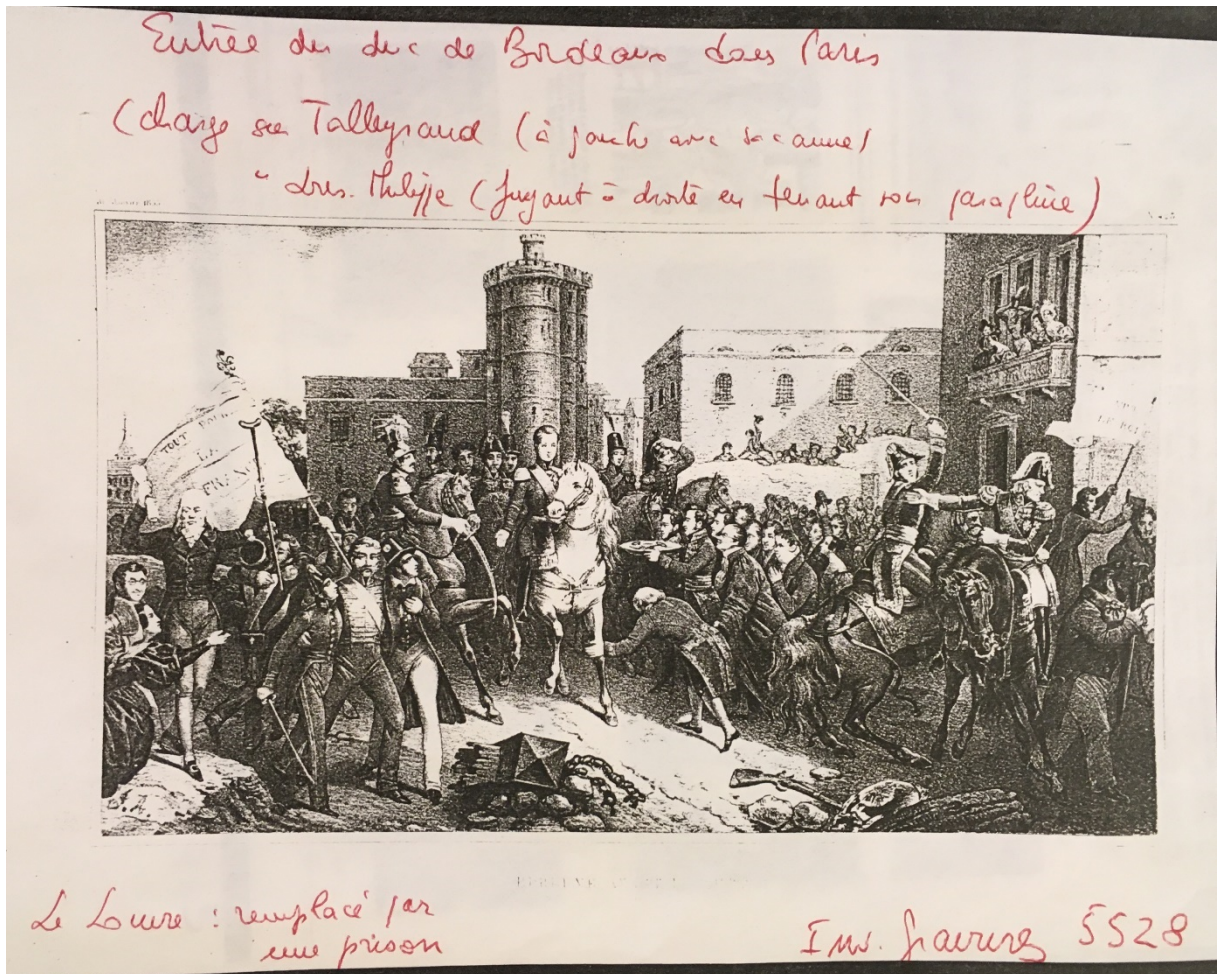 Entrée du duc de Bordeaux dans Paris
(charge sur Talleyrand (à gauche avec sa canne)
" Louis. Philippe (fuyant à droite en tenant son parapluie)
TOUT POUR
LA
FRANCE
Le Louvre : remplacé par
une prison
Inv. Gravures 5528